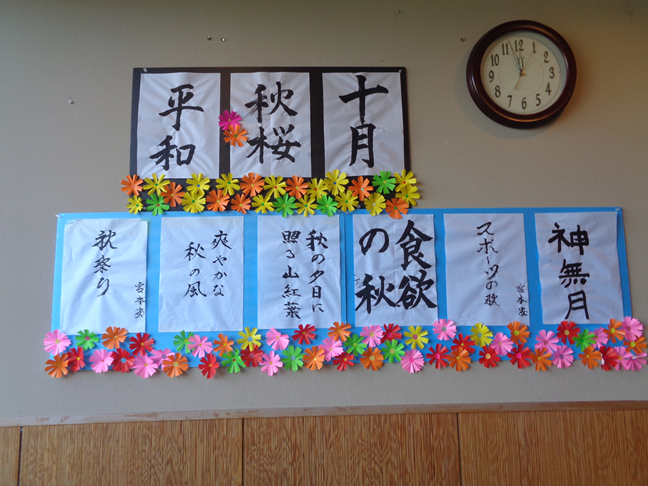 十月
秋桜
平和
神無月
スポーツの秋
宮本
食欲
の秋
秋の夕日に
照る山紅葉
爽やかな
秋の風
秋祭り
宮本
12 1 2 3 4 5 6 7 8 9 10 11